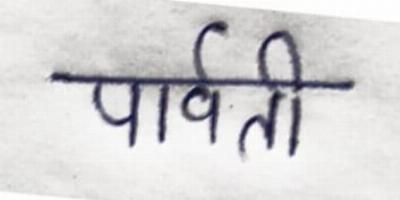 पार्वती